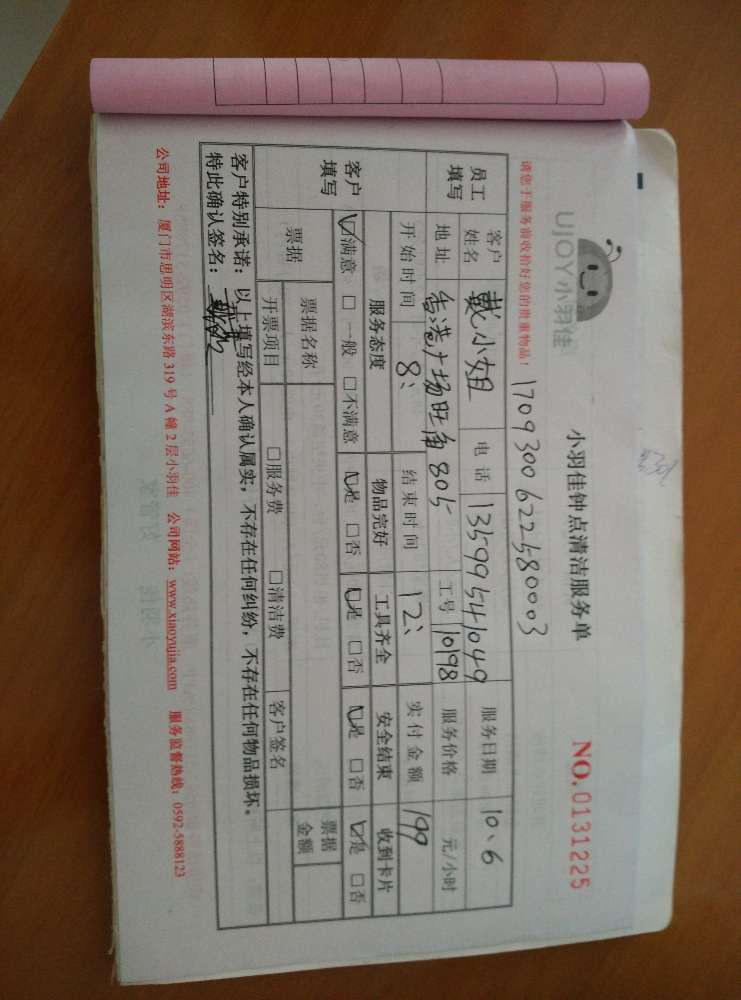 UJOY小羽佳
小羽佳钟点清洁服务单
NO.0131225
请您于服务前收拾好您的贵重物品！
17093006221580003
员工填写
客户姓名 戴小姐 电话 13599541049 服务日期 10、6
地址 香港广场旺角805 工号 10198 服务价格 元/小时
开始时间 8: 结束时间 12: 实付金额 199
客户填写
服务态度 物品完好 工具齐全 安全结束 收到卡片
☑满意 □一般 □不满意 ☑是 □否 ☑是 □否 ☑是 □否 ☑是 □否
票据 票据名称 票据金额
开票项目 □服务费 □清洁费 客户签名
客户特别承诺：以上填写经本人确认属实，不存在任何纠纷，不存在任何物品损坏。
特此确认签名：
公司地址：厦门市思明区湖滨东路319号A幢2层小羽佳 公司网站：www.xiaoyujia.com 服务监督热线：0592-5888123